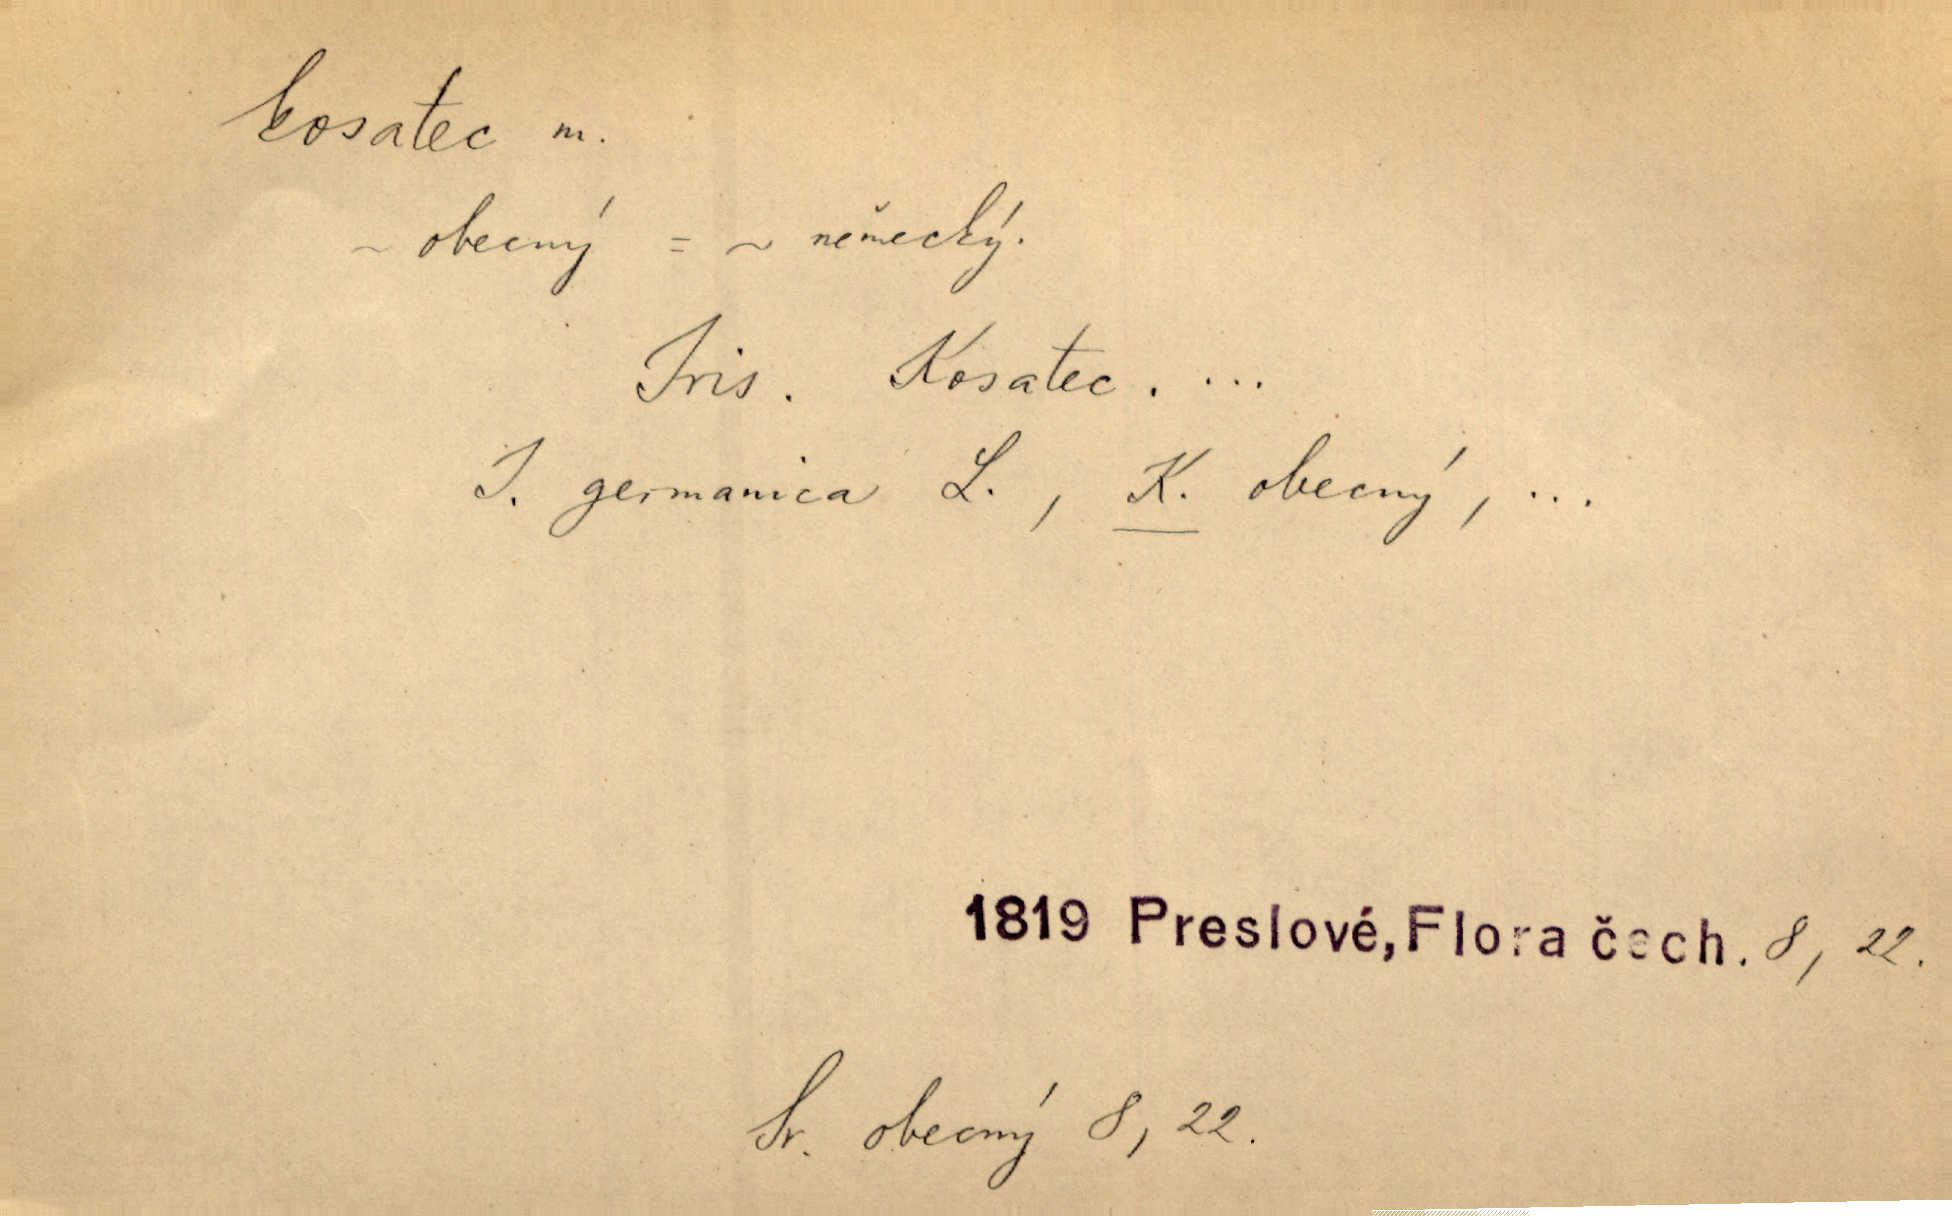 kosatec m.
~ obecný = ~ německý.
Iris. Kosatec. ...
I. germanica L., K. obecný, ...
1819 Preslové, Flora čech. 8, 22.
Sr. obecný 8, 22.